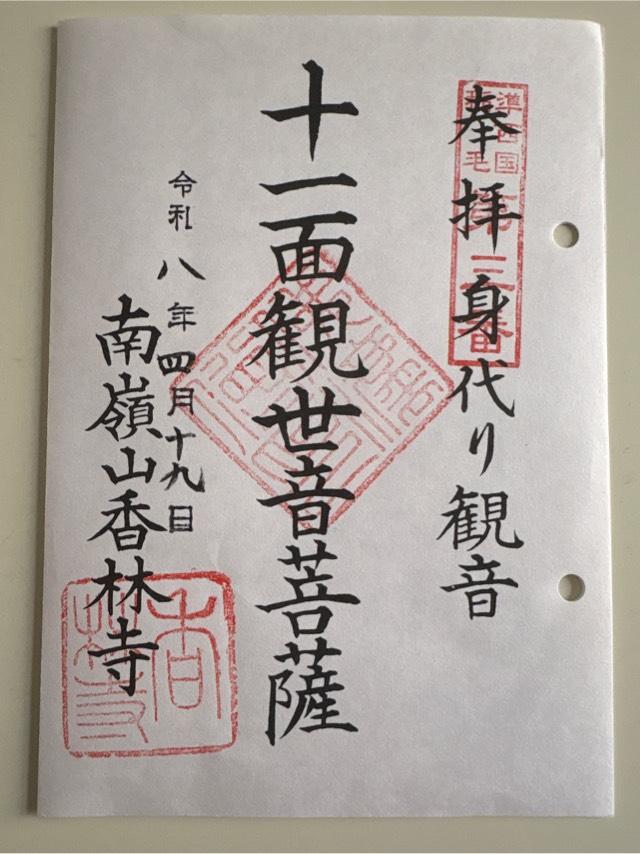 準西国
稲毛
第三番
奉拝身代り観音
十一面観世音菩薩
令和八年四月十九日
南嶺山香林寺
香林寺